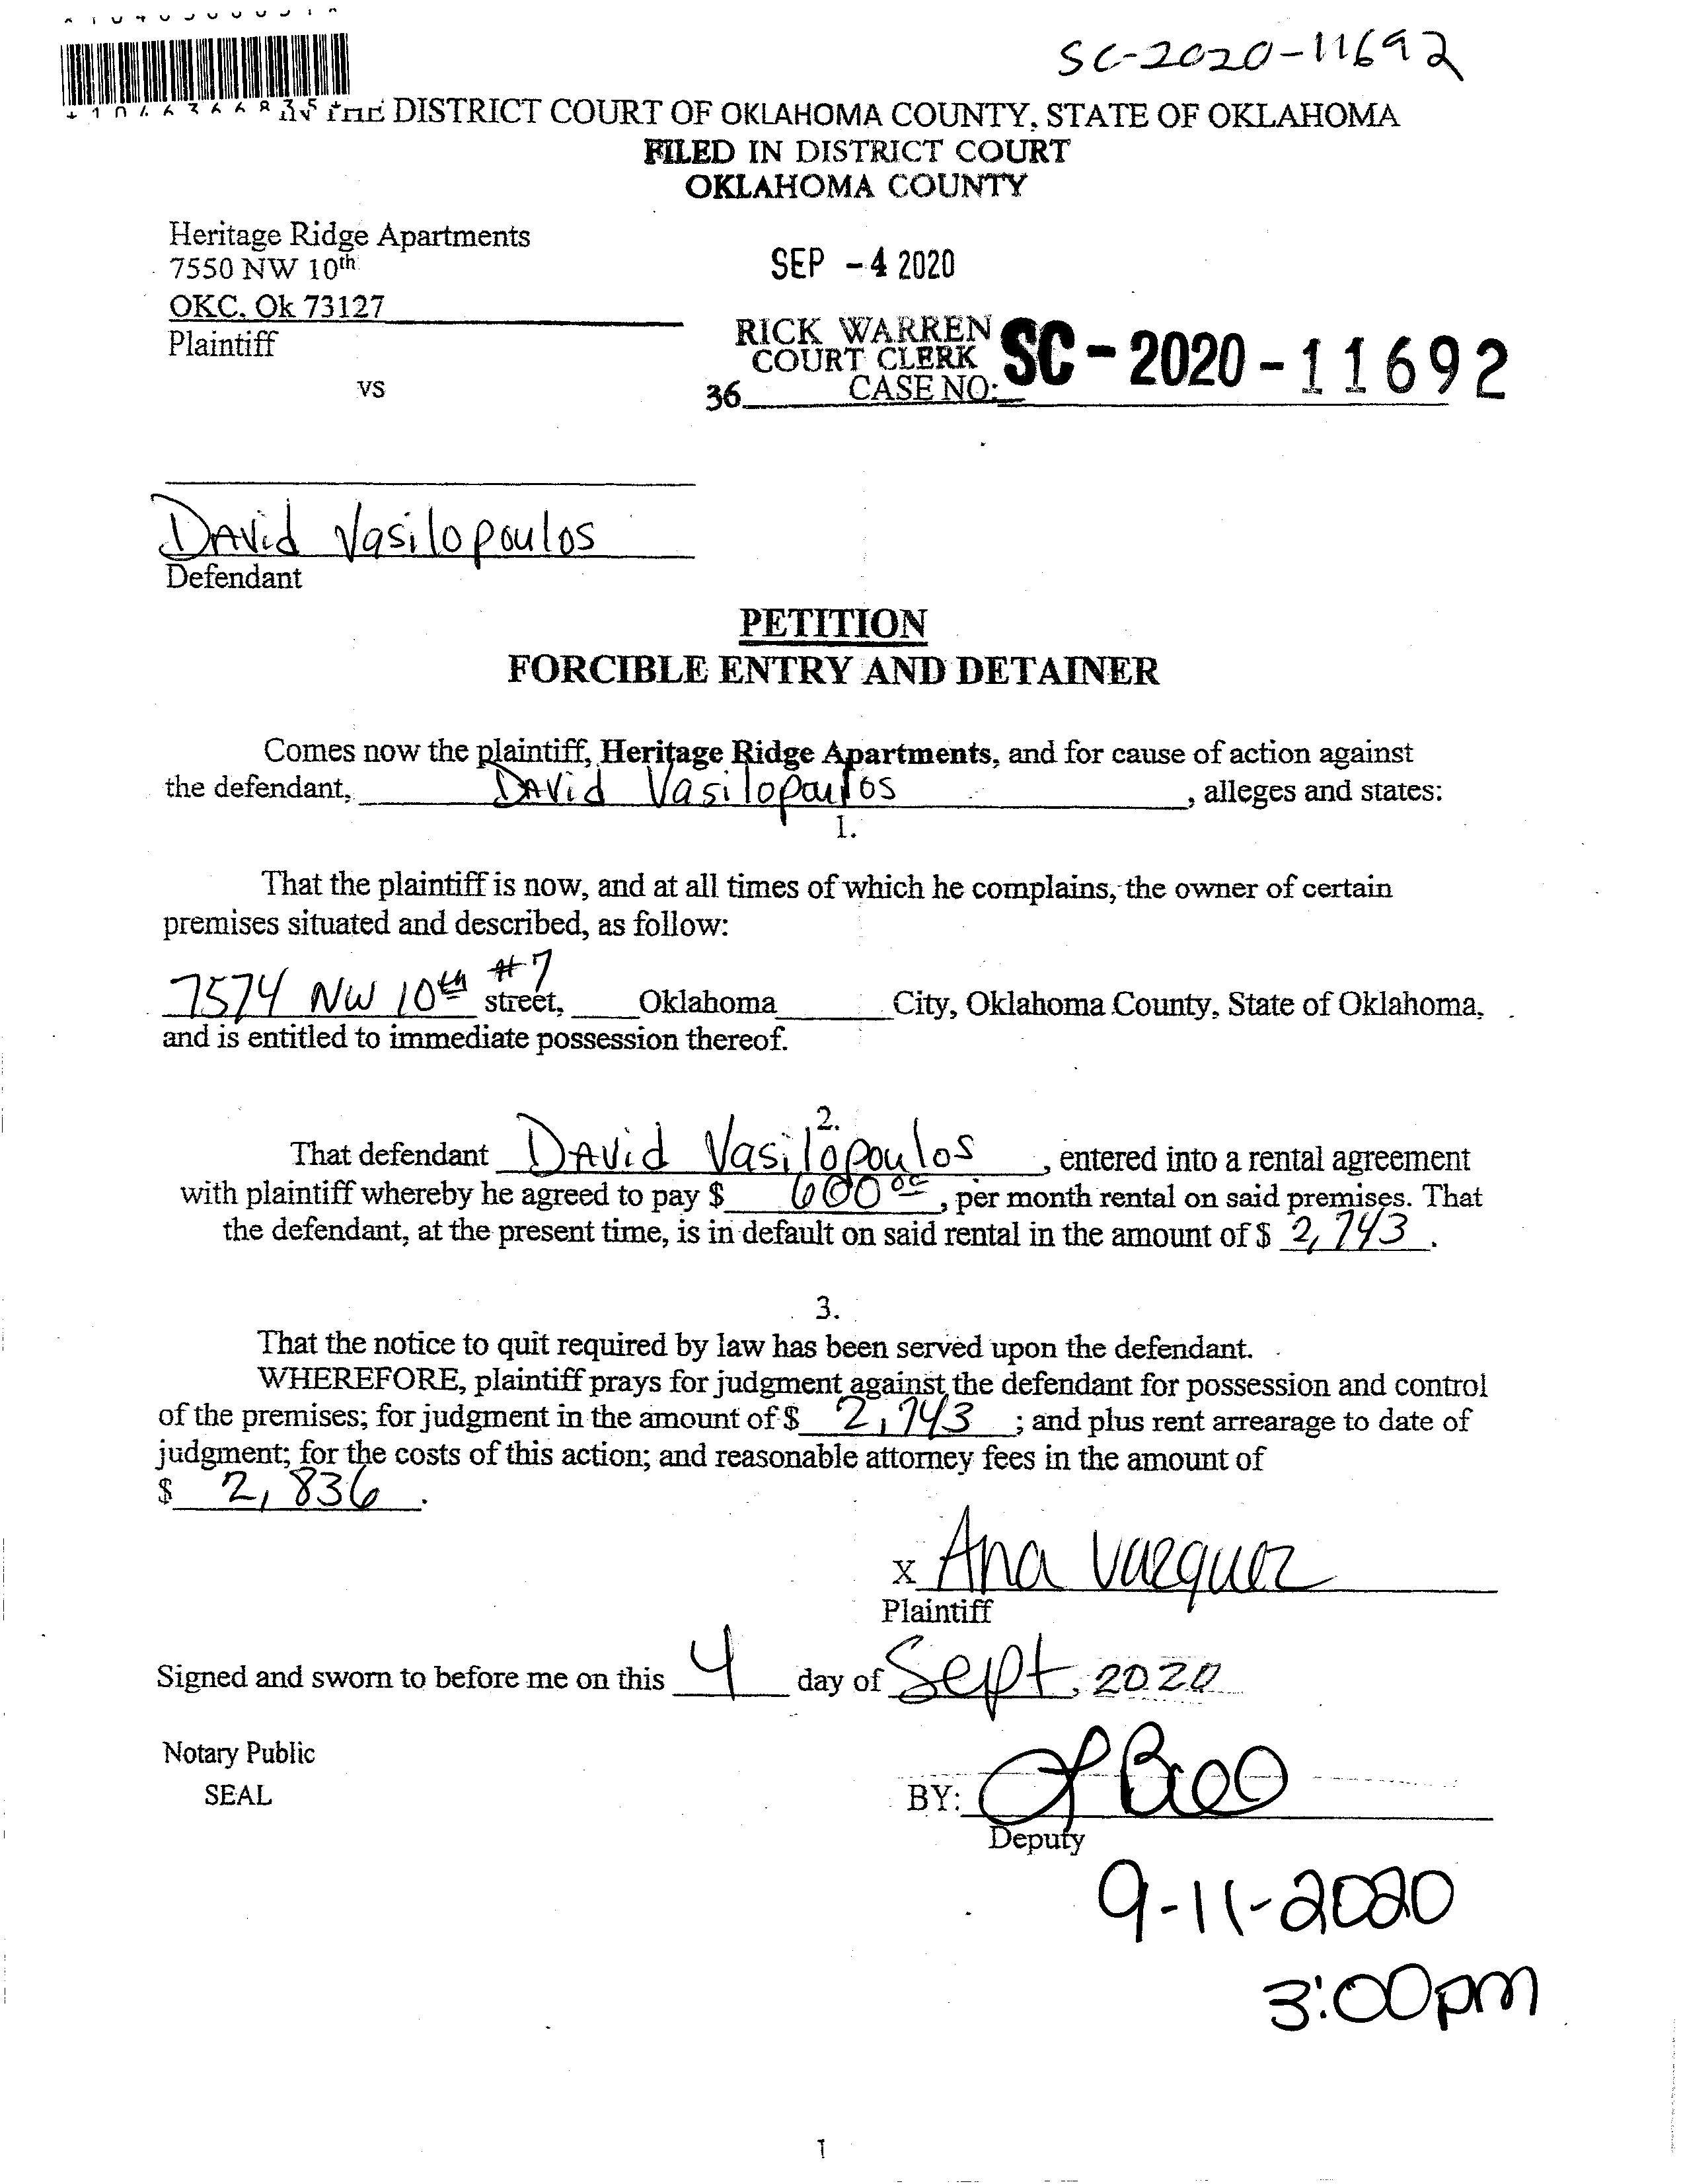 SC-2020-11692
IN THE DISTRICT COURT OF OKLAHOMA COUNTY, STATE OF OKLAHOMA
FILED IN DISTRICT COURT
OKLAHOMA COUNTY
Heritage Ridge Apartments
7550 NW 10th
OKC, Ok 73127
Plaintiff
SEP - 4 2020
RICK WARREN
COURT CLERK
36 CASE NO: SC - 2020 - 11692
vs
David Vasilopoulos
Defendant
PETITION
FORCIBLE ENTRY AND DETAINER
Comes now the plaintiff, Heritage Ridge Apartments, and for cause of action against
the defendant, David Vasilopoulos, alleges and states:
1.
That the plaintiff is now, and at all times of which he complains, the owner of certain
premises situated and described, as follow:
7574 NW 10th #7 street, Oklahoma City, Oklahoma County, State of Oklahoma,
and is entitled to immediate possession thereof.
2.
That defendant David Vasilopoulos, entered into a rental agreement
with plaintiff whereby he agreed to pay $ 600.00, per month rental on said premises. That
the defendant, at the present time, is in default on said rental in the amount of $ 2,743.
3.
That the notice to quit required by law has been served upon the defendant.
WHEREFORE, plaintiff prays for judgment against the defendant for possession and control
of the premises; for judgment in the amount of $ 2,743; and plus rent arrearage to date of
judgment; for the costs of this action; and reasonable attorney fees in the amount of
$ 2,836.
x Ana Vazquez
Plaintiff
Signed and sworn to before me on this 4 day of Sept, 2020
Notary Public
SEAL
BY:
Deputy
9-11-2020
3:00pm
1